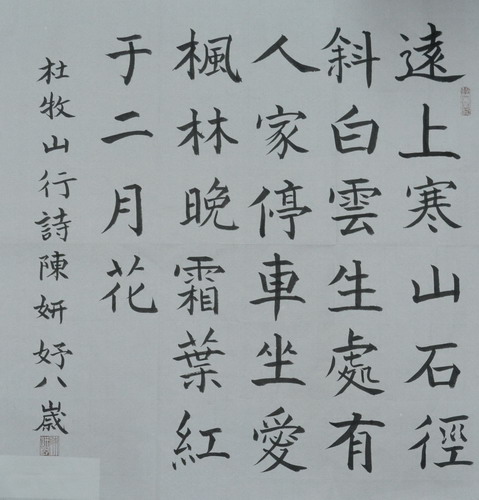 遠上寒山石徑
斜白雲生處有
人家停車坐愛
楓林晚霜葉紅
于二月花
杜牧山行詩陳妍妤八歲